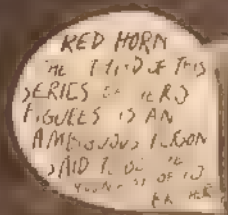 RED HORN
THE THIRD OF THIS
SERIES OF HERO
FIGURES IS AN
AMBIGUOUS PERSON
SAID TO BE THE